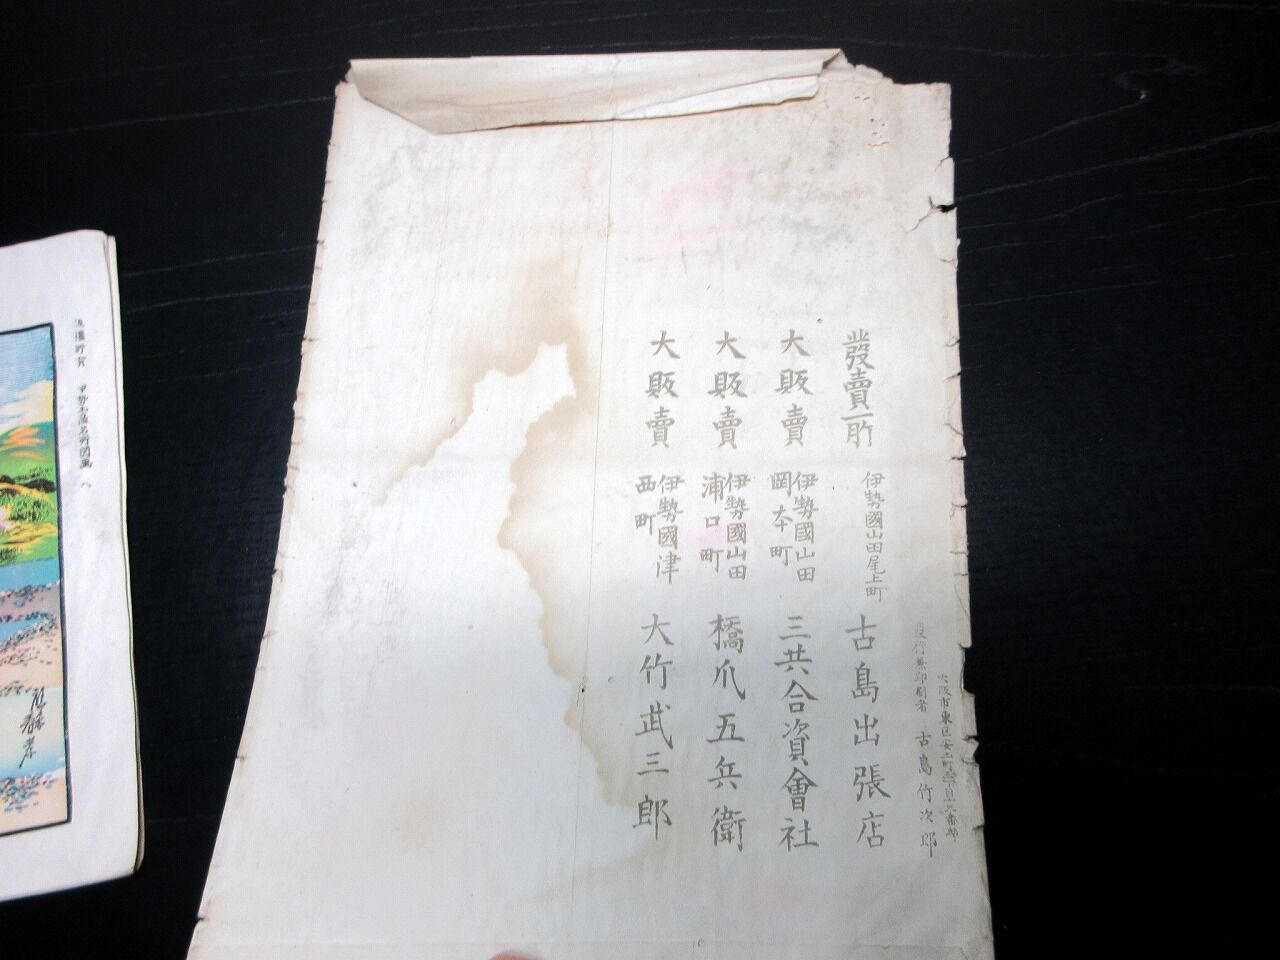 大阪市東區安土町
發行兼印刷者 古島竹次郎
發賣所 伊勢國山田尾上町 古島出張店
大販賣 伊勢國山田岡本町 三共合資會社
大販賣 伊勢國山田浦口町 橋爪五兵衛
大販賣 伊勢國津西町 大竹武三郎
伊勢 名所図画